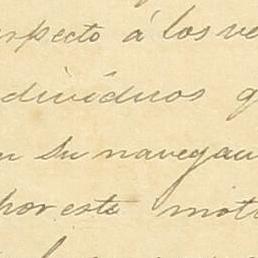 respecto á los ve
dividuos q
n su navegac
por este moti